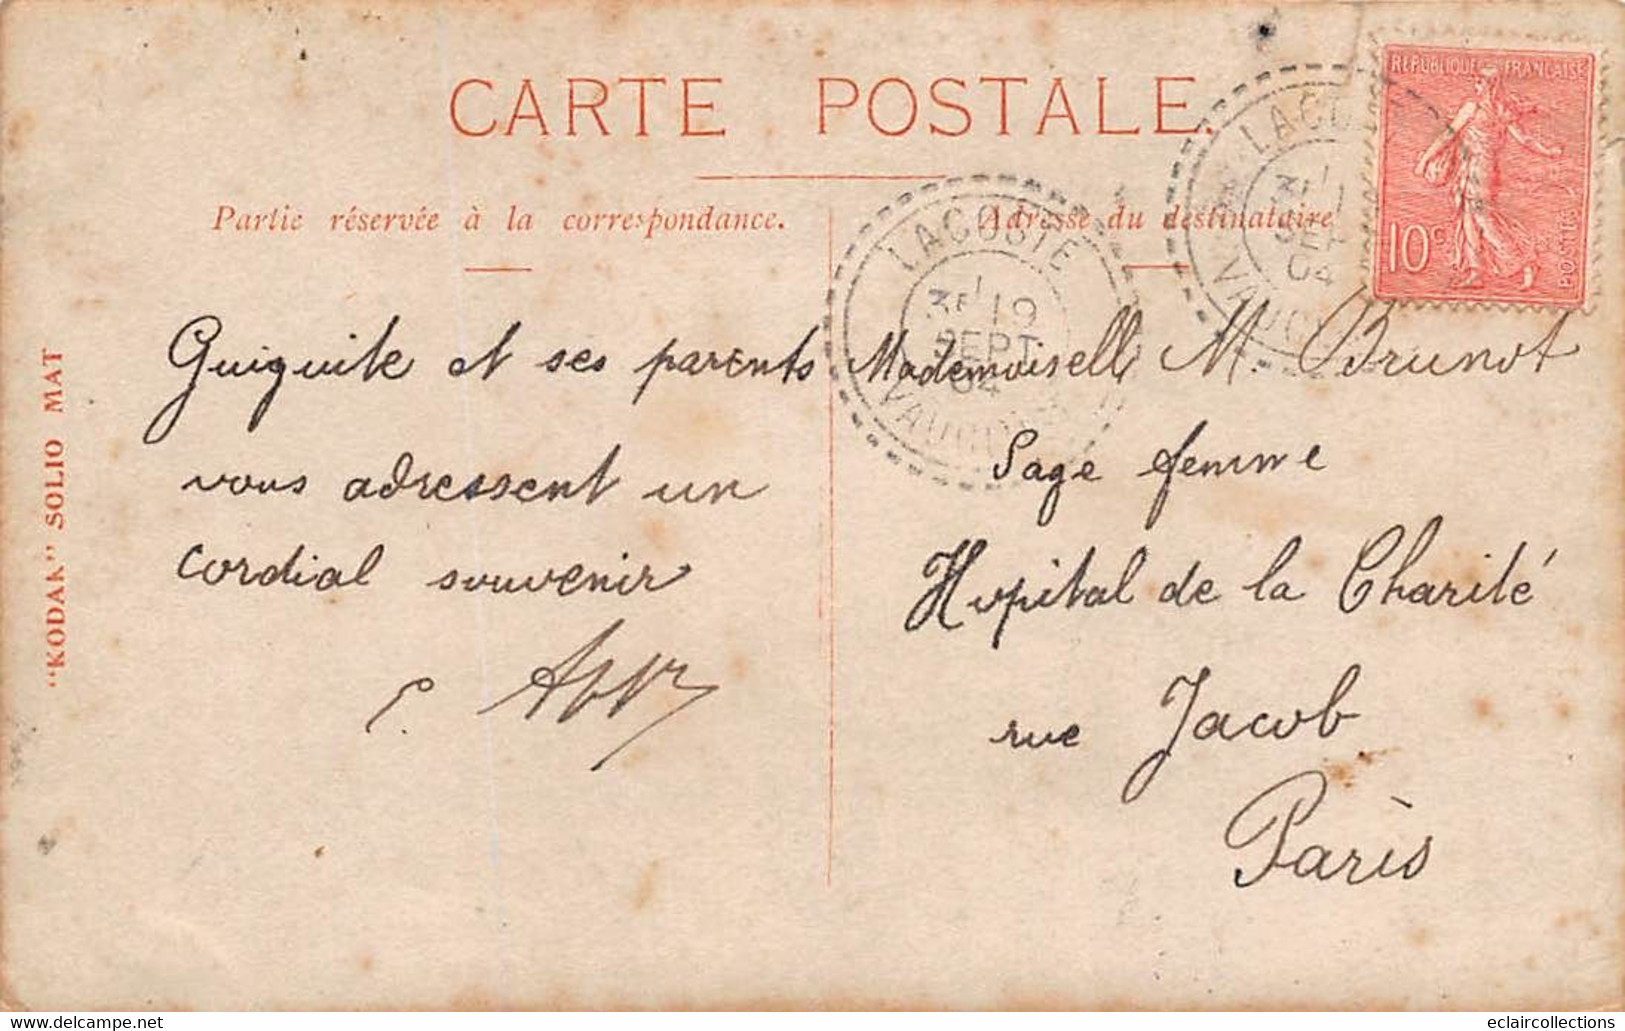 CARTE POSTALE.
Partie réservée à la correspondance.
Adresse du destinataire
REPUBLIQUE FRANÇAISE
10c
POSTES
LACOSTE
3E 19
SEPT
04
VAUCLUSE
LACOSTE
3E 1
SEPT
04
VAUCLUSE
"KODAK" SOLIO MAT
Guiguite et ses parents
vous adressent un
cordial souvenir
Mademoiselle M. Brunot
Sage femme
Hopital de la Charité
rue Jacob
Paris
delcampe.net
eclaircollections